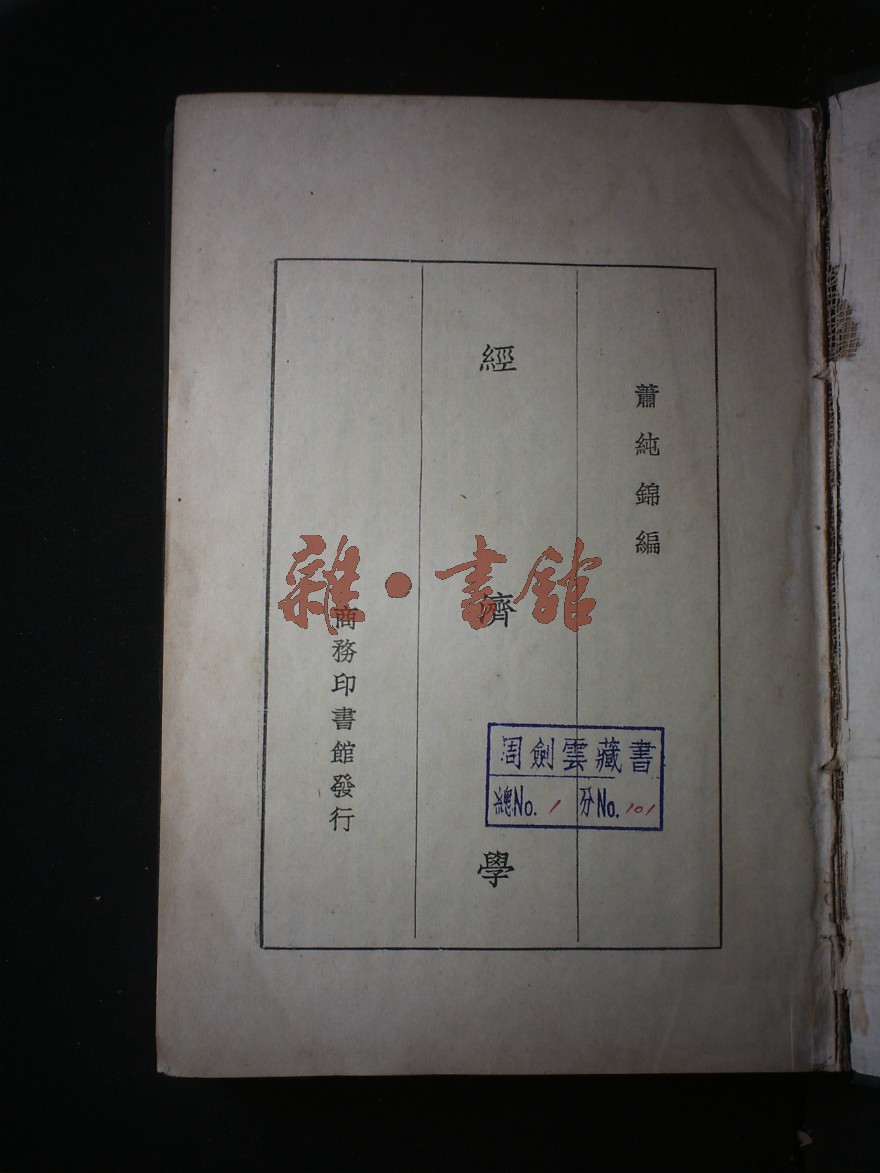 蕭純錦編
經濟學
商務印書館發行
雜·書館
周劍雲藏書
總No. 1 分No. 101